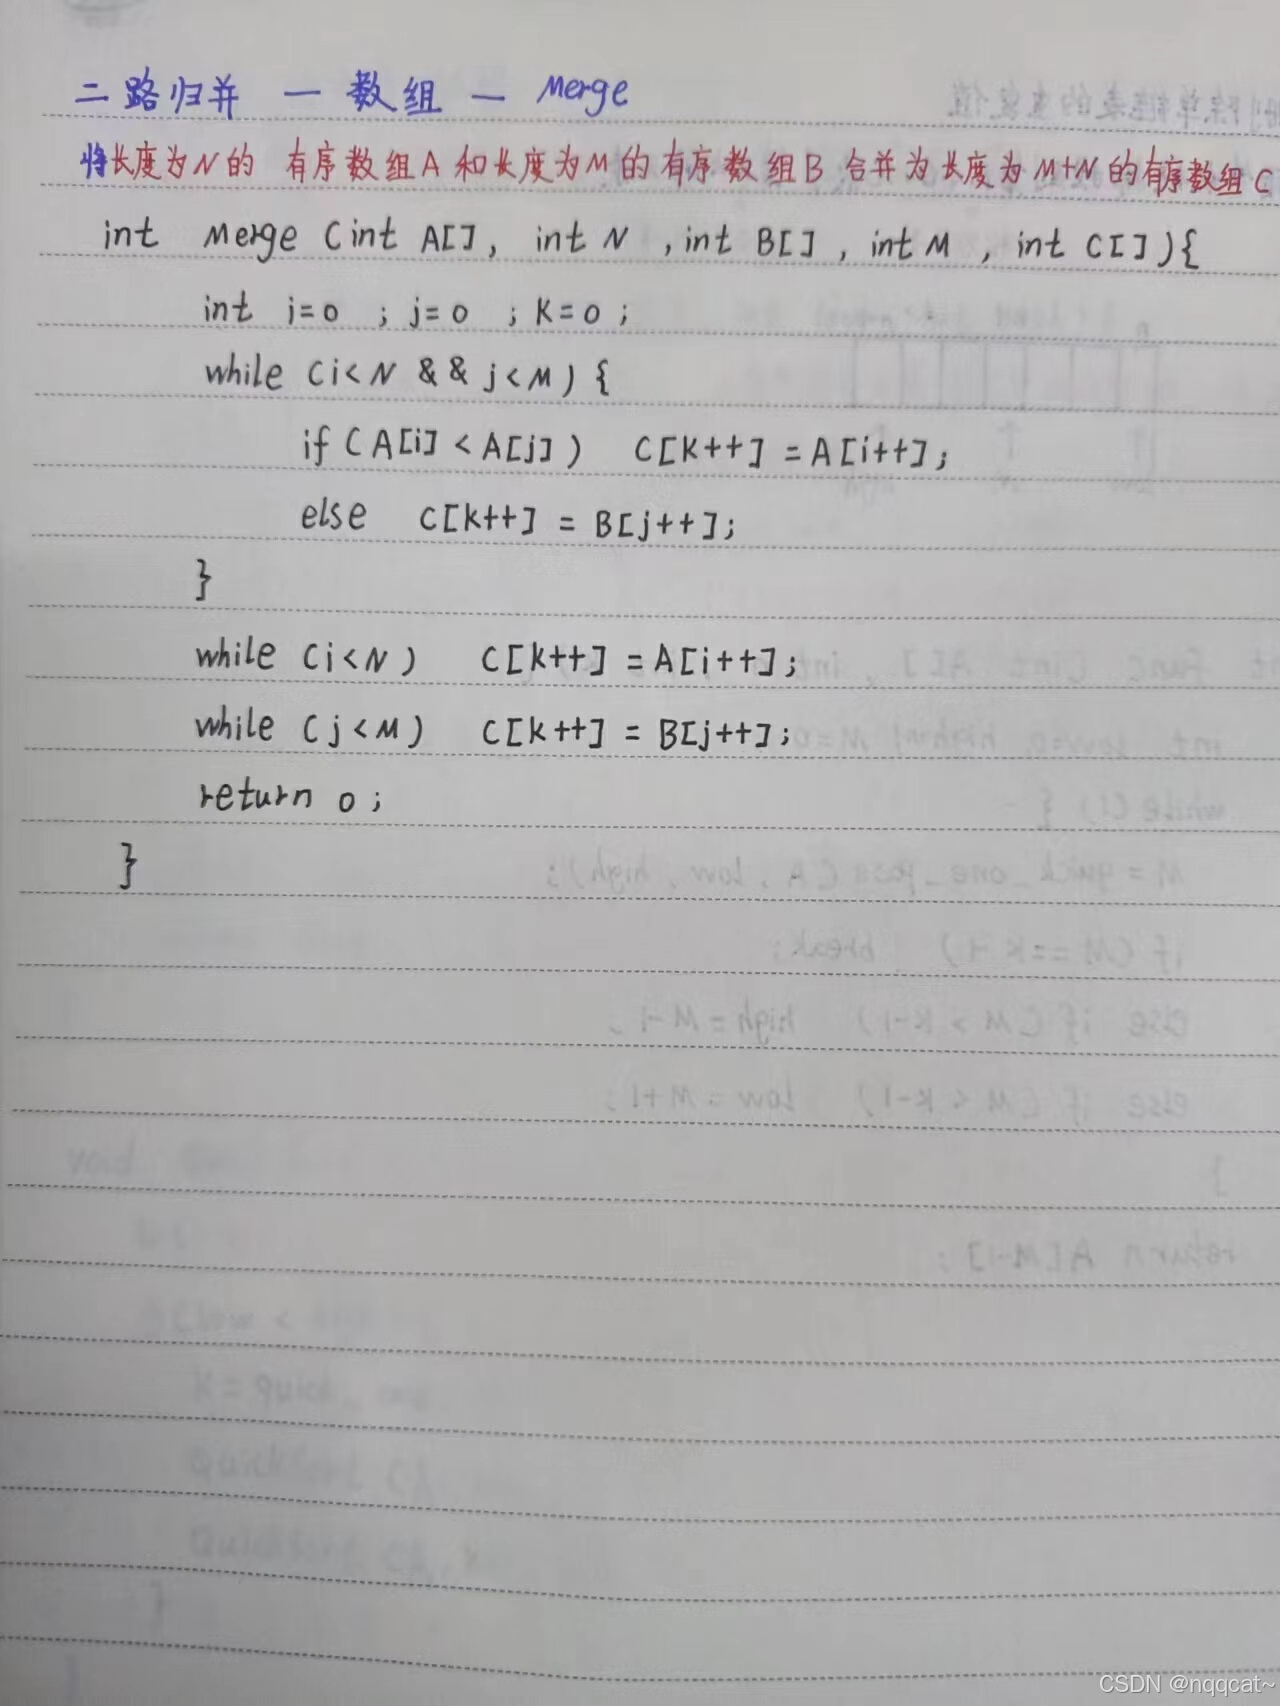 二路归并 — 数组 — Merge
将长度为N的 有序数组A和长度为M的有序数组B合并为长度为M+N的有序数组C
int Merge (int A[], int N ,int B[] , int M , int C[]){
int i=0 ; j=0 ; K=0 ;
while (i<N && j<M) {
if (A[i] < A[j]) C[K++] = A[i++];
else C[k++] = B[j++];
}
while (i<N) C[k++] = A[i++];
while (j<M) C[k++] = B[j++];
return 0 ;
}
CSDN @nqqcat~